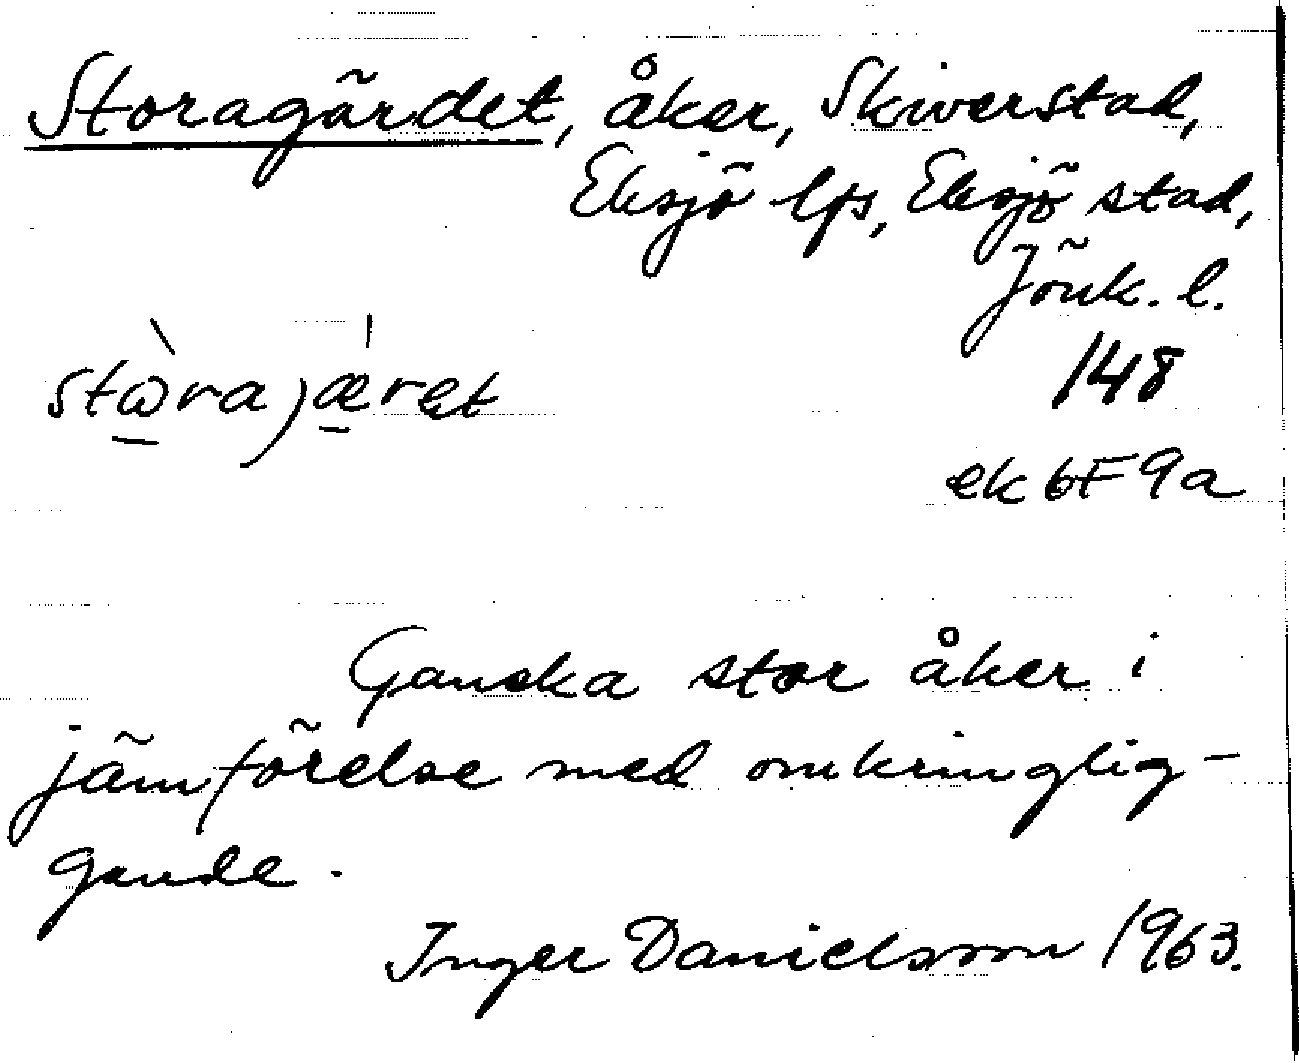 Storagärdet, åker, Skiverstad,
Eksjö lfs, Eksjö stad,
Jönk. l.
148
ek 6F9a
Ganska stor åker i
jämförelse med omkringlig-
gande.
Inger Danielsson 1963.